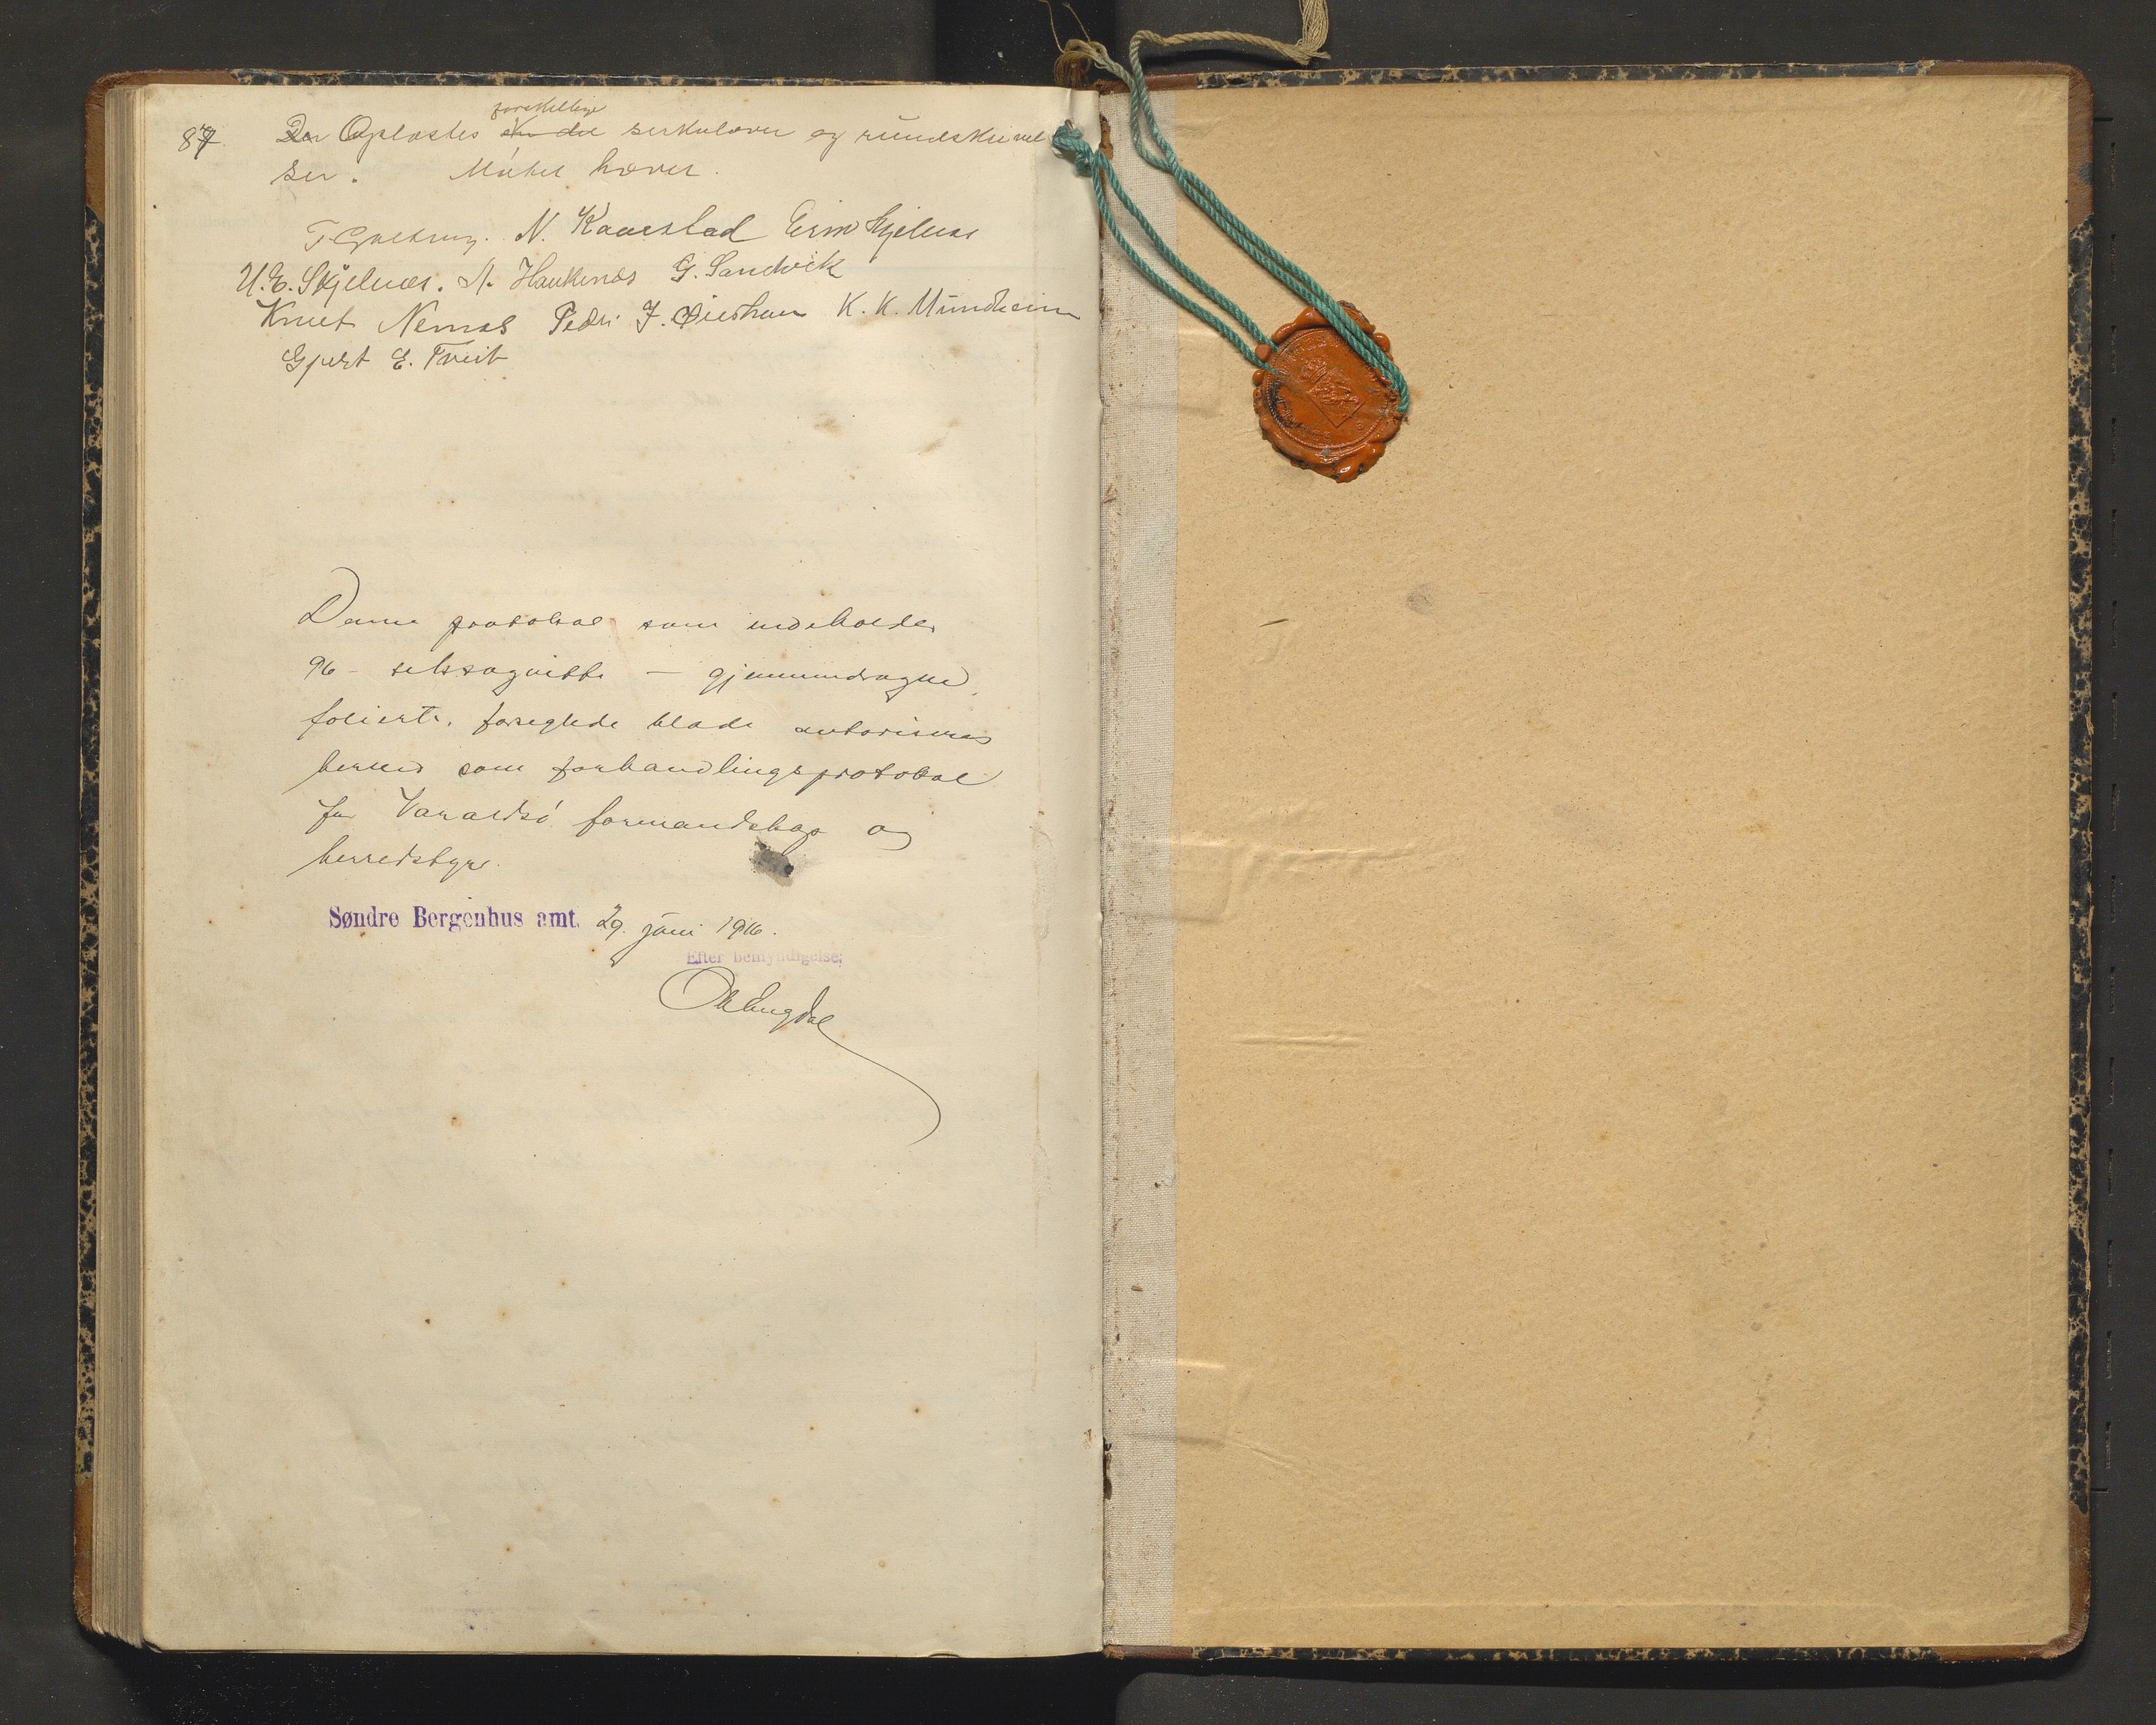 87. Der Oplæstes en del forskellige serkulærer og rundskrivel
ser. Mødet hæver.
N. Kaarstad
U. E. Skjelnæs. A. Haukenæs G. Sandvik
Knut Nernæs Peder J. K. K. Mundheim
Gjert E. Tveit
Denne protokol som indeholder
96 - seks og nitti - gjennemdragne,
folierte, forseglede blade autoriseres
herved som forhandlingsprotokol
for Varaldsø formandskap og
herredstyre.
Søndre Bergenhus amt, 29. juni 1916.
Efter bemyndigelse: